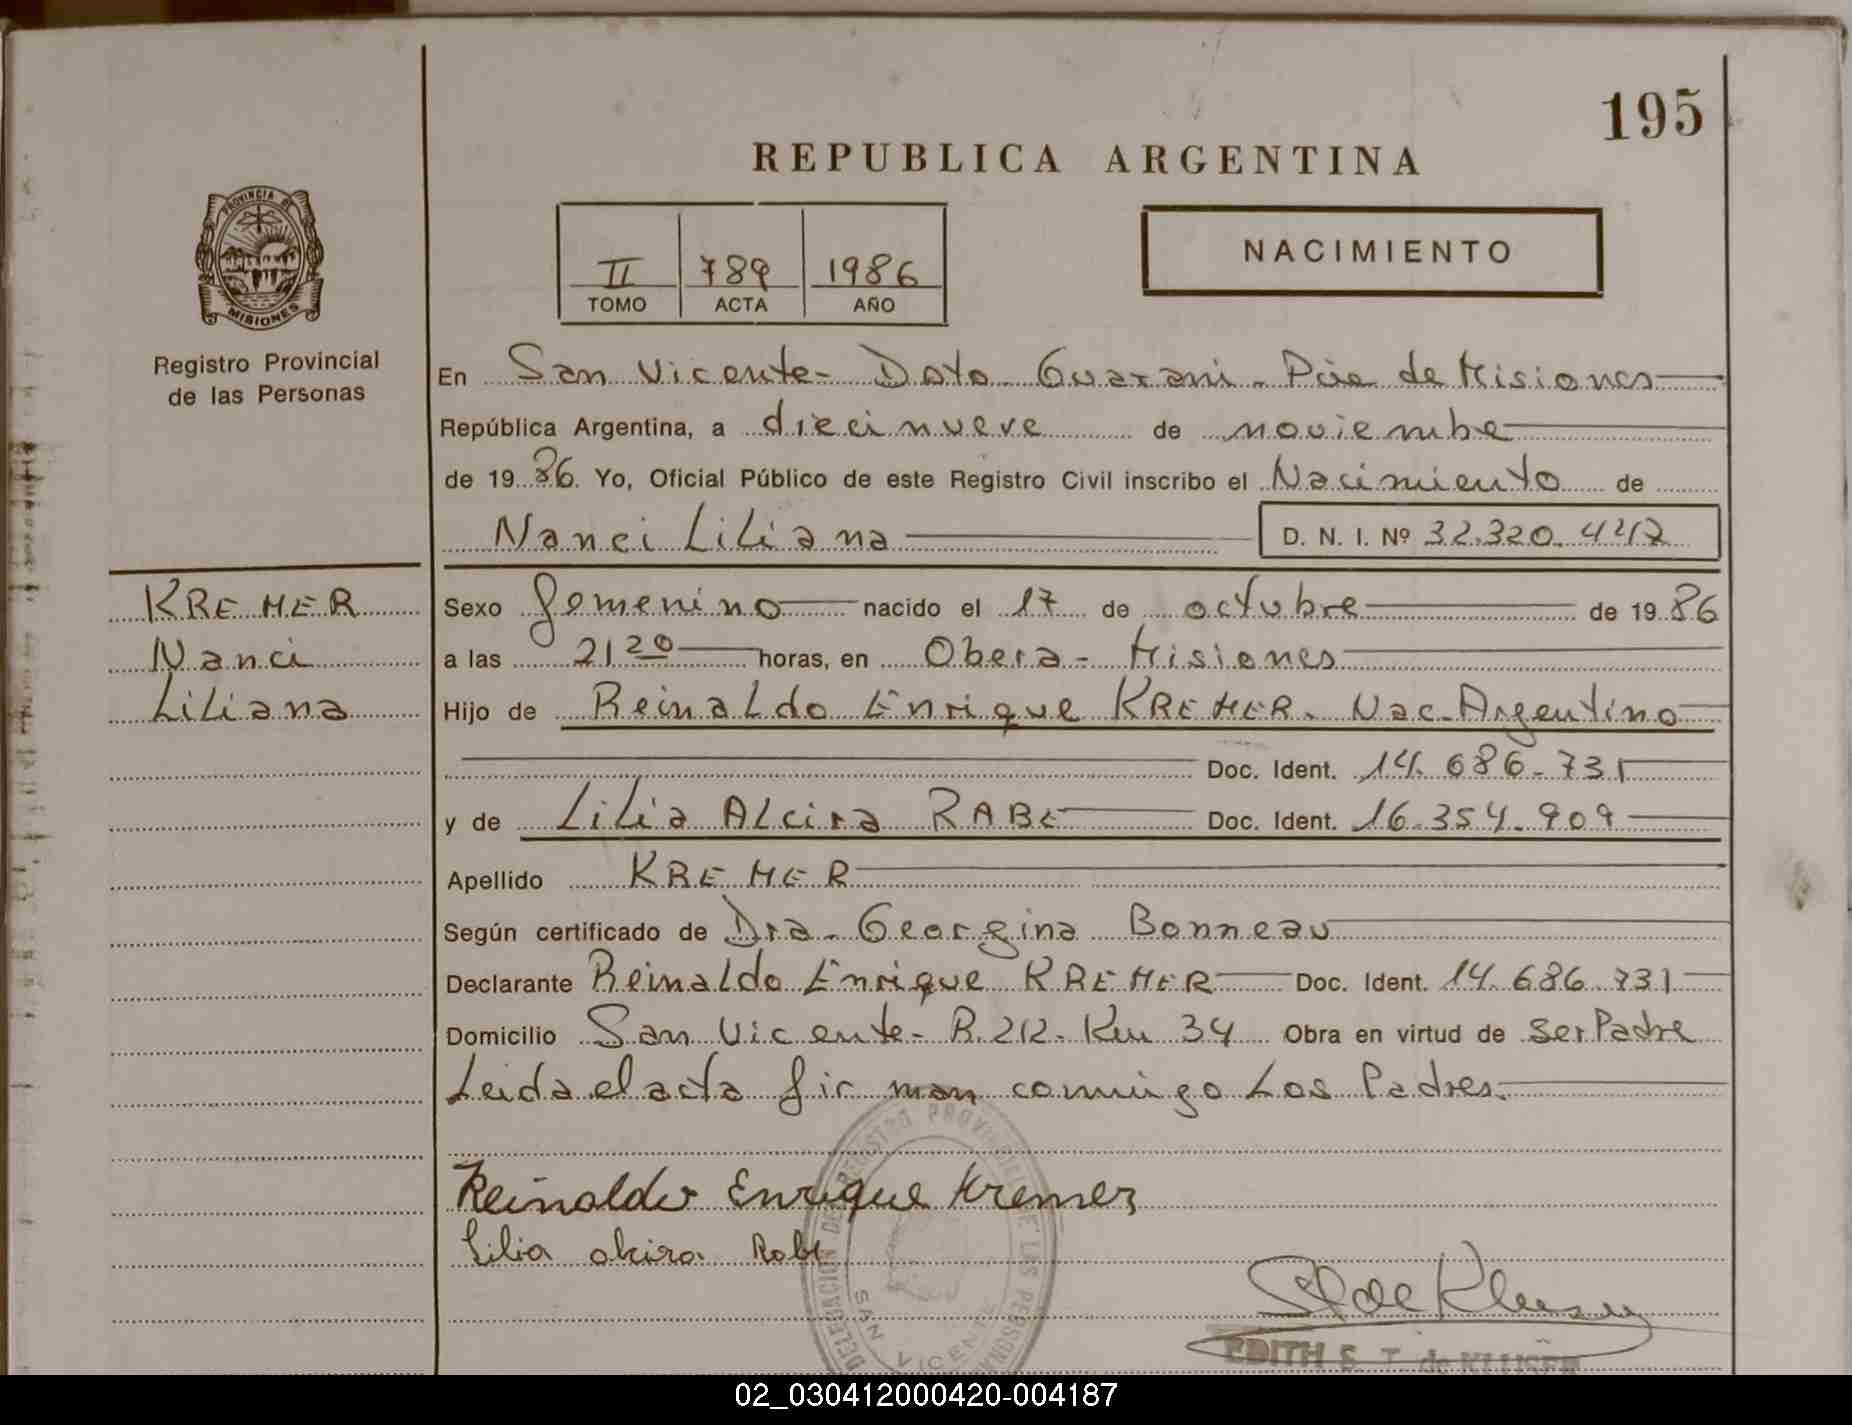 195
REPUBLICA ARGENTINA
PROVINCIA DE
MISIONES
Registro Provincial
de las Personas
II 789 1986
TOMO ACTA AÑO
NACIMIENTO
En San Vicente - Dpto Guarani - Pcia de Misiones
República Argentina, a diecinueve de noviembre
de 19 86. Yo, Oficial Público de este Registro Civil inscribo el Nacimiento de
Nanci Liliana D. N. I. Nº 32.320.
KREMER
Nanci
Liliana
Sexo femenino nacido el 17 de octubre de 19 86
a las 21 20 horas, en Obera - Misiones
Hijo de Reinaldo Enrique KREMER. Nac. Argentino
Doc. Ident. 14.686.731
y de Lilia Alcira RABE Doc. Ident. 16.354.909
Apellido KREMER
Según certificado de Dra. Georgina Bonneau
Declarante Reinaldo Enrique KREMER Doc. Ident. 14.686.731
Domicilio San Vicente - R. 212 - Km 34 Obra en virtud de ser Padre
Leida el acta firman conmigo Los Padres.
Reinaldo Enrique Kremer
Lilia Alcira Rabe
DELEGACION DEL REGISTRO PROVINCIAL DE LAS PERSONAS
SAN VICENTE
EDITH S. T. de KLUSEN
02_030412000420-004187